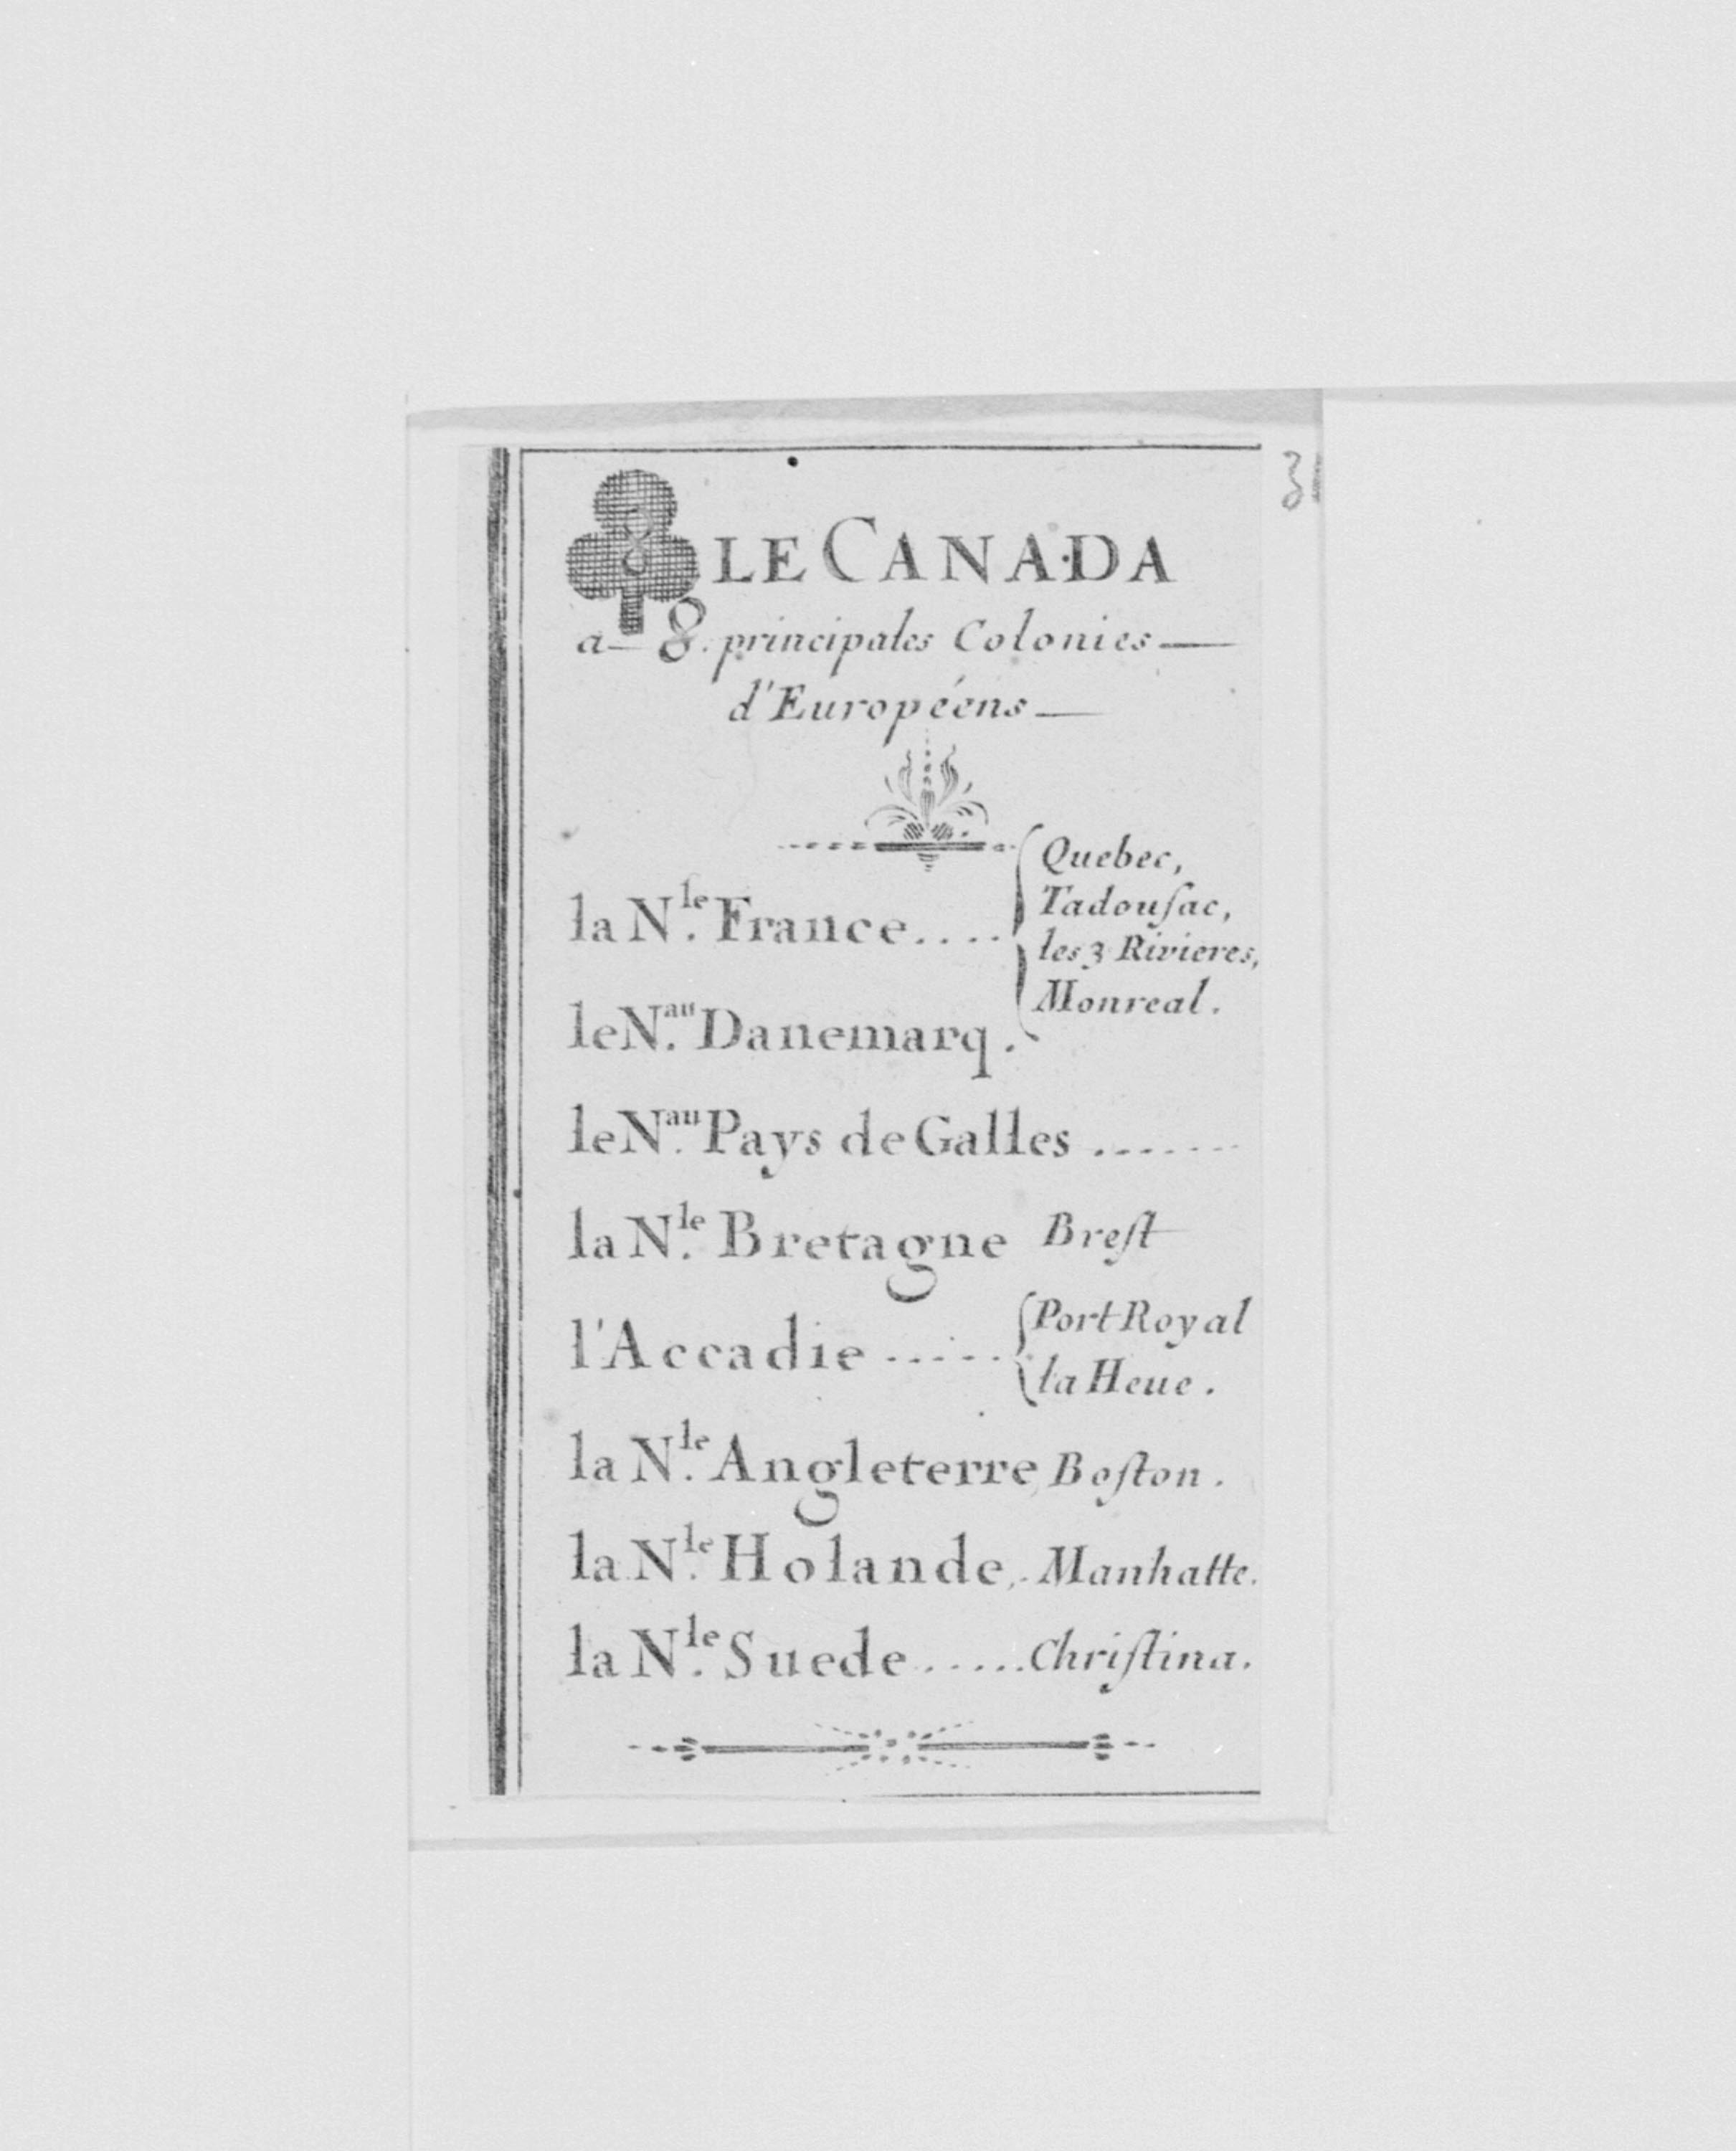 31
8 LE CANADA
a 8. principales Colonies
d'Européens
Quebec,
Tadouſac,
la N.le France....
les 3 Rivieres,
Monreal.
le N.au Danemarq.
le N.au Pays de Galles .......
la N.le Bretagne Breſt
l'Accadie ..... Port Royal
la Heue.
la N.le Angleterre Boſton.
la N.le Holande, Manhatte.
la N.le Suede ..... Chriſtina.